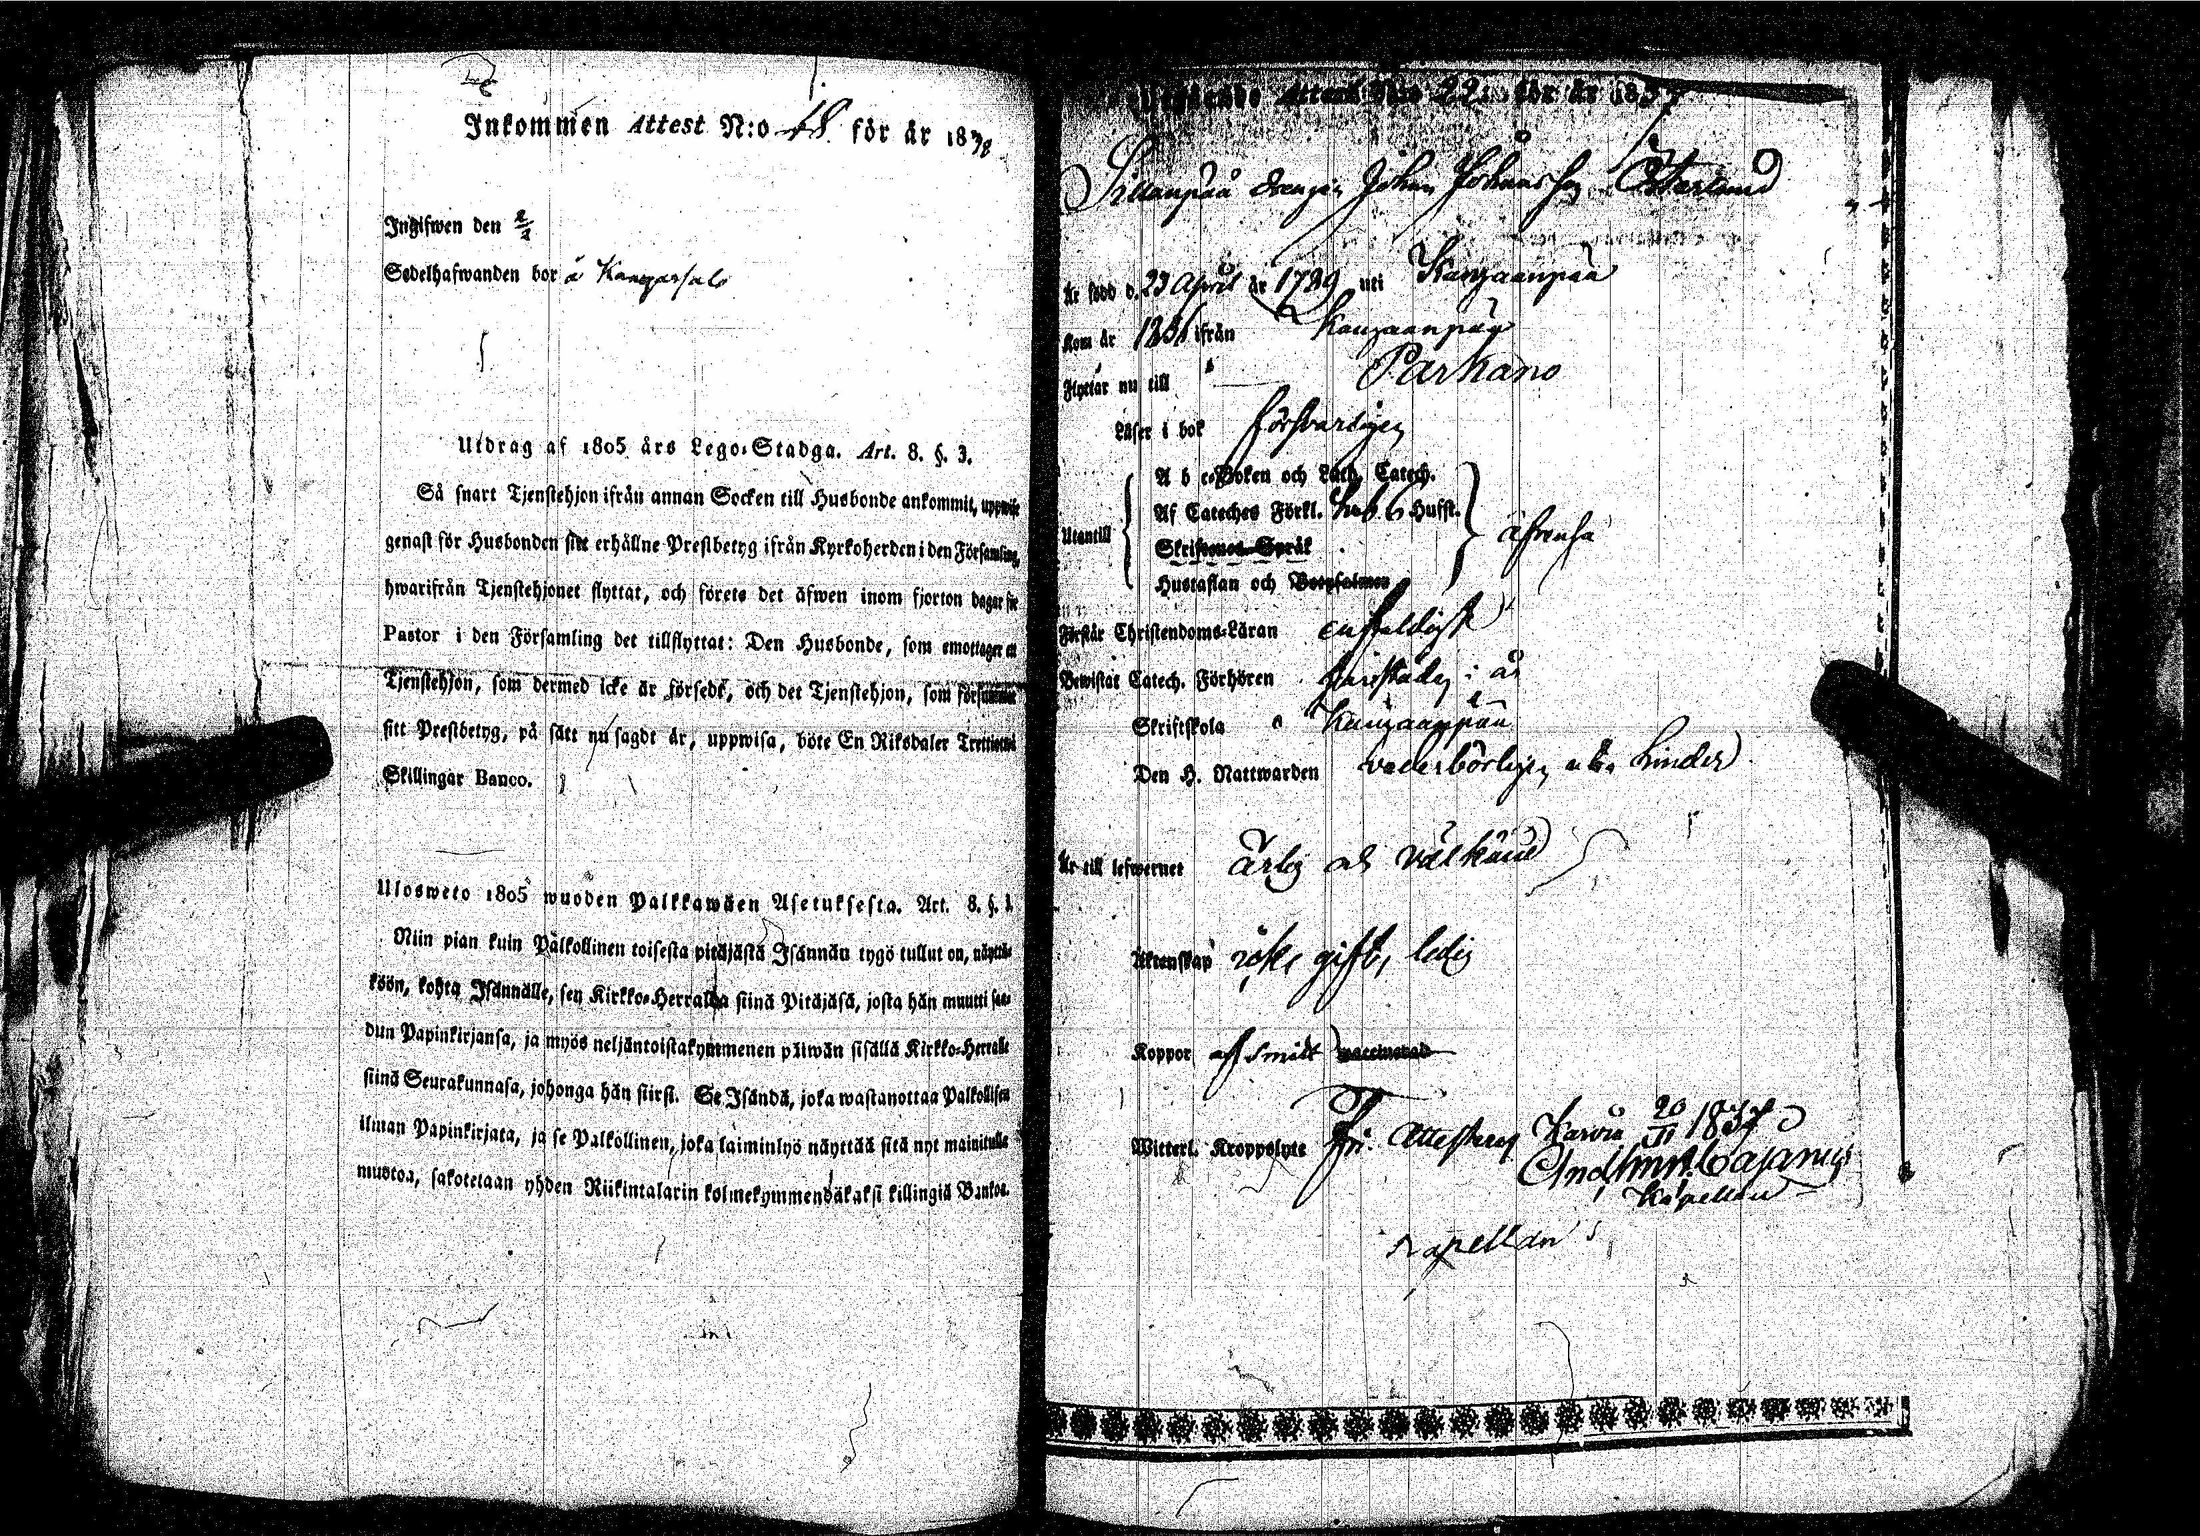 Inkommen Attest N:o 18. för år 1838
Ingifwen den 2/2
Sedelhafwanden bor å Kangarsalo
Utdrag af 1805 års Lego-Stadga. Art. 8. §. 3.
Så snart Tjenstehjon ifrån annan Socken till Husbonde ankommit, uppwise
genast för Husbonden sitt erhållne Prestbetyg ifrån Kyrkoherden i den Församling,
hwarifrån Tjenstehjonet flyttat, och förete det äfwen inom fjorton dagar för
Pastor i den Församling det tillflyttat: Den Husbonde, som emottager ett
Tjenstehjon, som dermed icke är försedt, och det Tjenstehjon, som försummar
sitt Prestbetyg, på sätt nu sagdt är, uppwisa, böte En Riksdaler Trettiotwå
Skillingar Banco.
Ulosweto 1805 wuoden Palkkawäen Asetuksesta. Art. 8. §. 3.
Niin pian kuin Palkollinen toisesta pitäjästä Isännän tygö tullut on, näyttä-
köön, kohta Isännälle, sen Kirkko-Herralda siinä Pitäjäsä, josta hän muutti saa-
dun Papinkirjansa, ja myös neljäntoistakymmenen päiwän sisällä Kirkko-Herralle
siinä Seurakunnasa, johonga hän siirsi. Se Isändä, joka wastanottaa Palkollisen
ilman Papinkirjata, ja se Palkollinen, joka laiminlyö näyttää sitä nyt mainitulla
muotoa, sakotetaan yhden Riikintalarin kolmekymmendäkaksi killingiä Bankos.
Utgående Attest N:o 22. för år 1837
Sillanpää drengen Johan Johansson Österlund
Är född d. 23 April år 1789 uti Kangaanpää
Kom år 1836 ifrån Kangaanpää
Flyttar nu till Parkano
Läser i bok försvarligen
A b c-Boken och Luth. Catech.
Af Cateches Förkl. Hufst.
Utantill
äfvenså
Skriftenes-Språk
Hustaflan och Botpsalmer
Förstår Christendoms-Läran enfaldigt
Bewistat Catech. Förhören i år
Skriftskola i Kangaanpää
Den H. Nattwarden vederbörligen utan hinder
Är till lefwernet ärlig och välkänd
Äktenskap icke gift, ledig
Koppor af smitt vaccinerad
Witterl. Kroppslyte Fri. Attesterar Karvia 20/11 1837
And Imm. Cajanus
Kapellan
Kapellan